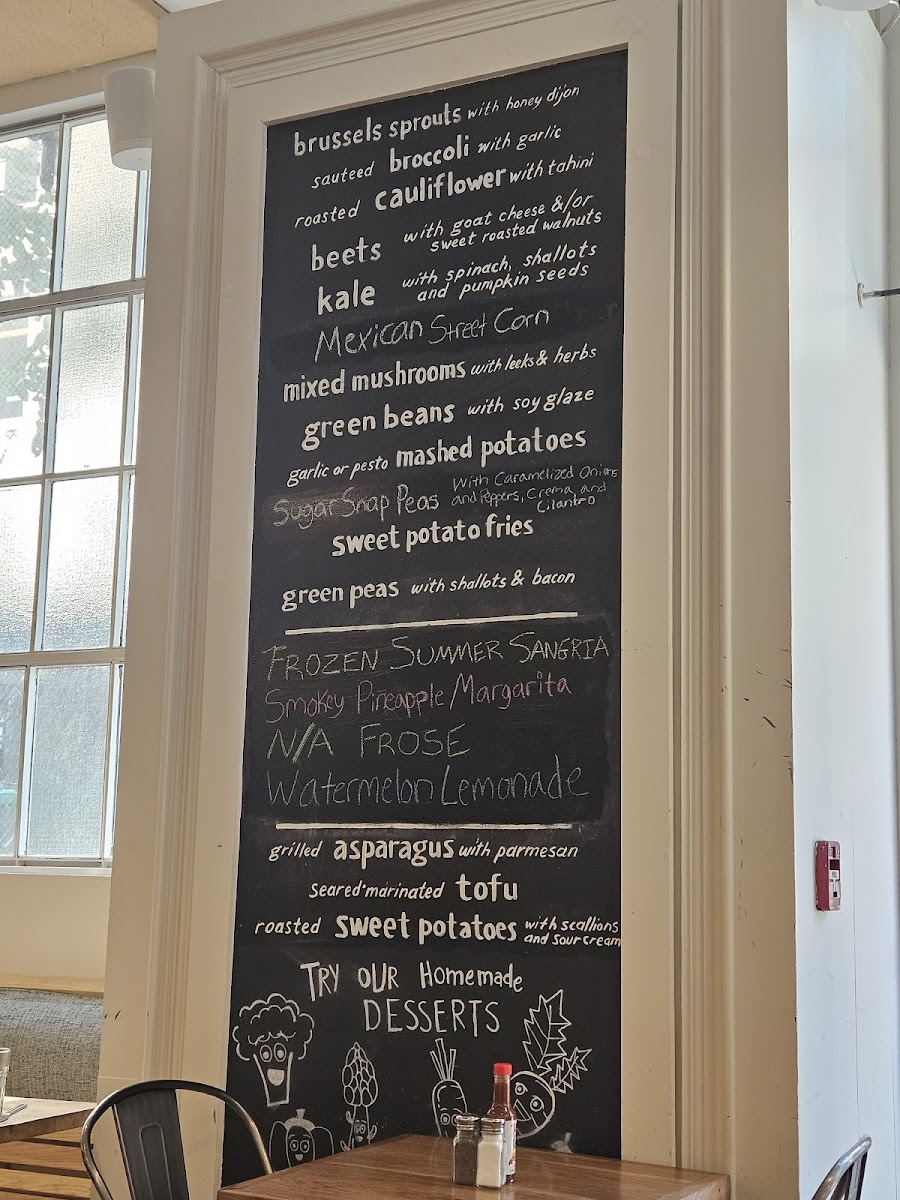 brussels sprouts with honey dijon
sauteed broccoli with garlic
roasted cauliflower with tahini
beets with goat cheese &/or
sweet roasted walnuts
kale with spinach, shallots
and pumpkin seeds
Mexican Street Corn
mixed mushrooms with leeks & herbs
green beans with soy glaze
garlic or pesto mashed potatoes
Sugar Snap Peas With Caramelized Onions
and Peppers, Crema and
Cilantro
sweet potato fries
green peas with shallots & bacon
FROZEN SUMMER SANGRIA
Smokey Pineapple Margarita
N/A FROSE
Watermelon Lemonade
grilled asparagus with parmesan
Seared marinated tofu
roasted sweet potatoes with scallions
and sour cream
TRY OUR Homemade
DESSERTS